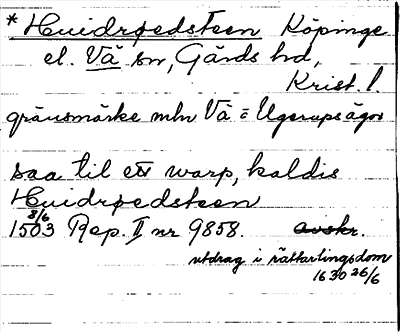 * Huidrødsteen Köpinge
el. Vä sn, Gärds hd,
Krist. l.
gränsmärke mln Vä = Ugerups ägor
saa til ett warp, kaldis
Huidrødsteen
8/6
1503 Rep. II nr 9858. avskr.
utdrag i rättartingsdom
1630 26/6